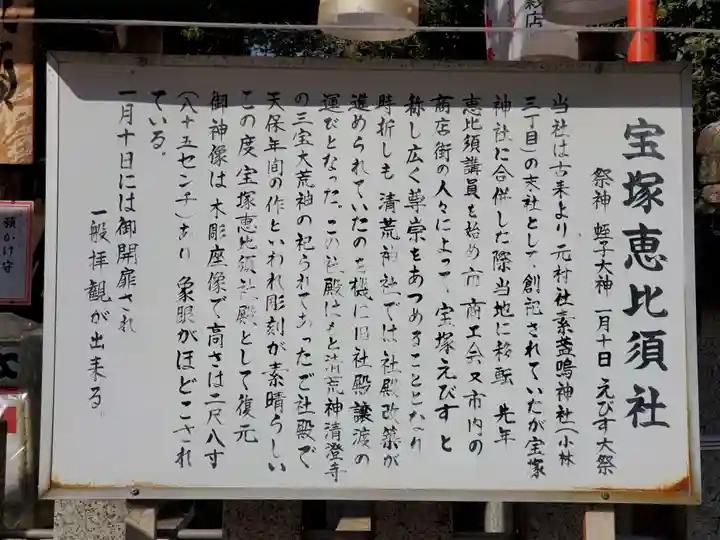 宝塚恵比須社
祭神 蛭子大神 一月十日 えびす大祭
当社は古来より元村社素盞嗚神社(小林
三丁目)の末社として創祀されていたが宝塚
神社に合併した際当地に移転 先年
恵比須講員を始め市商工会又市内の
商店街の人々によって宝塚えびすと
称し広く尊崇をあつめることとなり
時折しも清荒神社では社殿改築が
進められていたのを機に旧社殿譲渡の
運びとなった。この社殿はもと清荒神清澄寺
の三宝大荒神の祀られてあったご社殿で
天保年間の作といわれ彫刻が素晴らしい
この度宝塚恵比須社殿として復元
御神像は木彫座像で高さは二尺八寸
(八十五センチ)あり 象眼がほどこされ
ている。
一月十日には御開扉され
一般拝観が出来る。
願かけ守